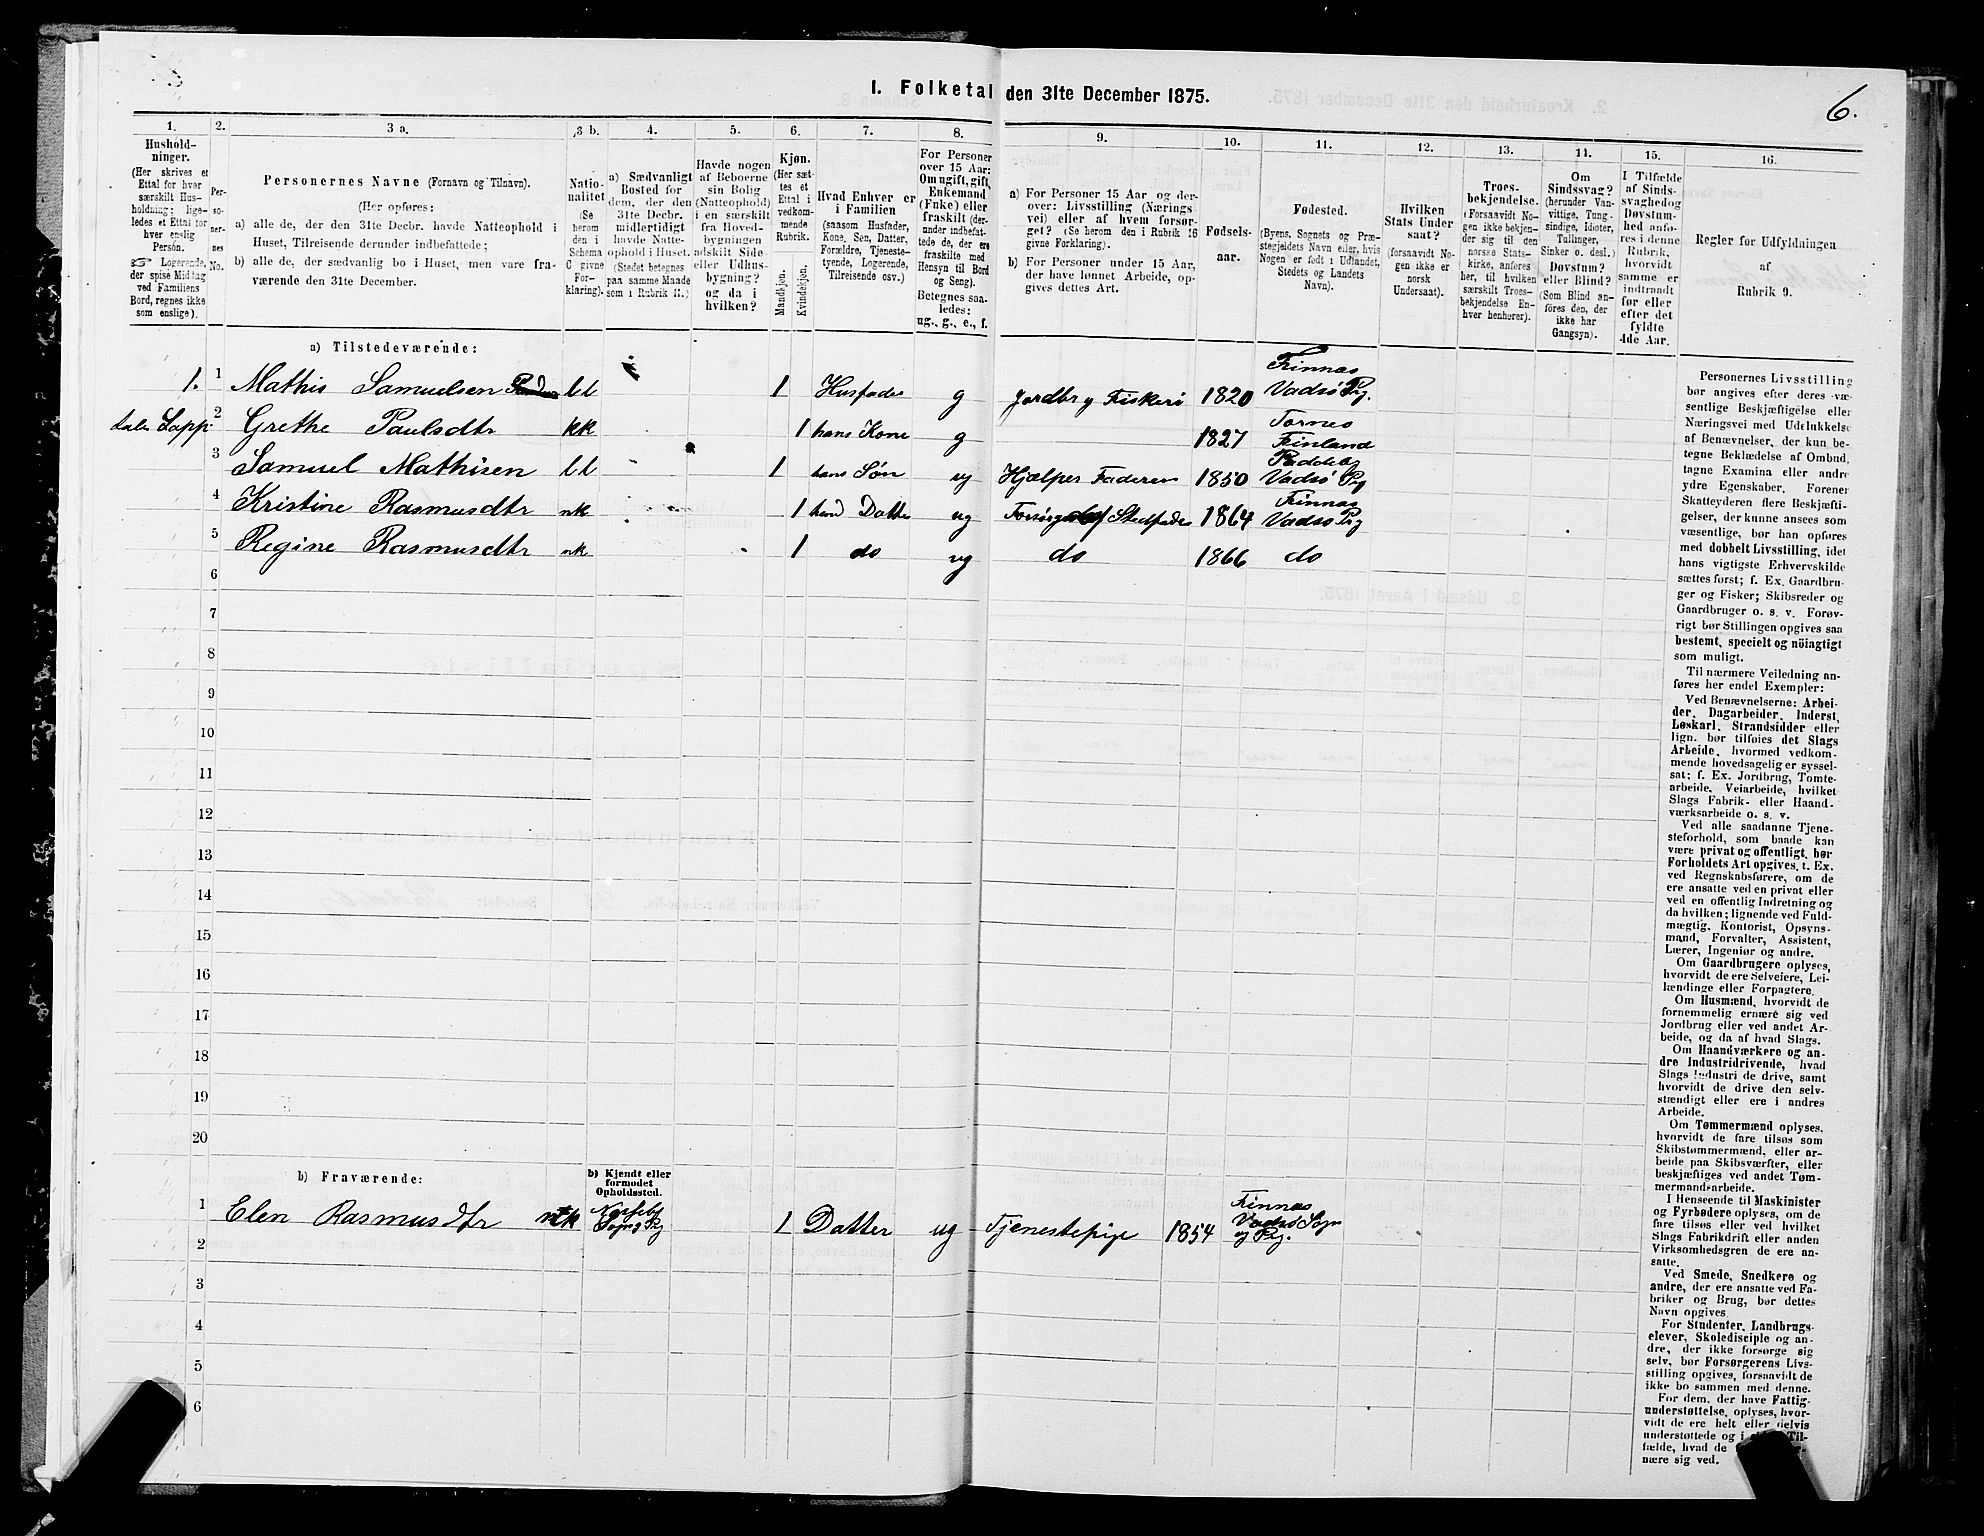 1. Folketal den 31te December 1875.
6.
1.
2.
3 a.
3 b.
4.
5.
6.
7.
8.
9.
10.
11.
12.
13.
14.
15.
16.
Hushold-
ninger.
(Her skrives et
Ettal for hver
særskilt Hus-
holdning; lige-
ledes et Ettal for
hver enslig
Person.
☞ Logerende,
der spise Middag
ved Familiens
Bord, regnes ikke
som enslige).
Per-
so-
ner-
nes
No.
Personernes Navne (Fornavn og Tilnavn).
(Her opføres:
a) alle de, der den 31te Decbr. havde Natteophold i
Huset, Tilreisende derunder indbefattede;
b) alle de, der sædvanlig bo i Huset, men vare fra-
værende den 31te December.
Natio-
nalitet
(Se
herom
den i
Schema
C givne
For-
klaring).
a) Sædvanligt
Bosted for
dem, der den
31te Decbr.
midlertidigt
havde Natte-
ophold i Huset.
(Stedet betegnes
paa samme Maade
som i Rubrik 11.)
Havde nogen
af Beboerne
sin Bolig
(Natteophold)
i en særskilt
fra Hoved-
bygningen
adskilt Side-
eller Udhus-
bygning?
og da i
hvilken?
Kjøn.
(Her sæt-
tes et
Ettal i
vedkom-
mende
Rubrik.
Mandkjøn.
Kvindekjøn.
Hvad Enhver er
i Familien
(saasom Husfader,
Kone, Søn, Datter,
Forældre, Tjeneste-
tyende, Logerende,
Tilreisende osv.)
For Personer
over 15 Aar:
Om ugift, gift,
Enkemand
(Enke) eller
fraskilt (der-
under indbefat-
tede de, der ere
fraskilte med
Hensyn til Bord
og Seng).
Betegnes saa-
ledes:
ug., g., e., f.
a) For Personer 15 Aar og der-
over: Livsstilling (Nærings
vei) eller af hvem forsør-
get? (Se herom den i Rubrik 16
givne Forklaring).
b) For Personer under 15 Aar,
der have lønnet Arbeide, op-
gives dettes Art.
Fødsels-
aar.
Fødested.
(Byens, Sognets og Præ-
stegjeldets Navn eller, hvis
Nogen er født i Udlandet,
Stedets og Landets
Navn).
Hvilken
Stats Under
saat?
(forsaavidt No-
gen ikke er
norsk
Undersaat).
Troes-
bekjendelse.
(Forsaavidt No-
gen ikke bekjen-
der sig til den
norske Stats-
kirke, anføres
her, til hvilken
særskilt Troes-
bekjendelse En-
hver henhører).
Om
Sindssvag?
(herunder Van-
vittige, Tung-
sindige, Idioter,
Tullinger,
Sinker o. desl.)
Døvstum?
eller Blind?
(Som Blind an-
føres den, der
ikke har
Gangsyn).
I Tilfælde
af Sinds-
svaghed og
Døvstum-
hed anfø-
res i denne
Rubrik,
hvorvidt
samme er
indtraadt
før eller
efter det
fyldte
4de Aar.
Regler for Udfyldningen
af
Rubrik 9.
a) Tilstedeværende:
1. 1 Mathis Samuelsen ll 1 Husfader g Jordbr og Fiskeri 1820 Finnæs Vadsø Pg.
taler Lapp: 2 Grethe Paulsdtr kk 1 hans Kone g 1827 Torneo Finland
3 Samuel Mathisen ll 1 hans Søn ug Hjælper Faderen 1850 Paddeby Vadsø Pg
4 Kristine Rasmusdtr nk 1 hend Datter ug Forsørges af Stedfader 1864 Finnæs Vadsø Pg
5 Regine Rasmusdtr nk 1 do ug do 1866 do
6
7
8
9
10
11
12
13
14
15
16
17
18
19
20
b) Fraværende:
b) Kjendt eller
formodet
Opholdssted.
1 Elen Rasmusdtr nk Næsseby Sogn og Pg 1 Datter ug Tjenestepige 1854 Finnæs Vadsø Sogn og Pg.
2
3
4
5
6
Personernes Livsstilling
bør angives efter deres væ-
sentlige Beskjæftigelse eller
Næringsvei med Udelukkelse
af Benævnelser, der kun be-
tegne Beklædelse af Ombud,
tagne Examina eller andre
ydre Egenskaber. Forener
Skatteyderen flere Beskjæfti-
gelser, der kunne ansees som
væsentlige, bør han opføres
med dobbelt Livsstilling, idet
hans vigtigste Erhvervskilde
sættes først; f. Ex. Gaardbru-
ger og Fisker; Skibsreder og
Gaardbruger o. s. v. Forøv-
rigt bør Stillingen opgives saa
bestemt, specielt og nöiagtigt
som muligt.
Til nærmere Veiledning an-
føres her endel Exempler:
Ved Benævnelserne: Arbei-
der, Dagarbeider, Inderst,
Løskarl, Strandsidder eller
lign. bør tilføies det Slags
Arbeide, hvormed vedkom-
mende hovedsagelig er syssel-
sat; f. Ex. Jordbrug, Tomte-
arbeide, Veiarbeide, hvilket
Slags Fabrik- eller Haand-
værksarbeide o. s. v.
Ved alle saadanne Tjene-
steforhold, som baade kan
være privat og offentligt, bør
Forholdets Art opgives, t. Ex.
ved Regnskabsførere, om de
ere ansatte ved en privat eller
ved en offentlig Indretning og
da hvilken; lignende ved Fuld-
mægtig, Kontorist, Opsyns-
mand, Forvalter, Assistent,
Lærer, Ingeniør og andre.
Om Gaardbrugere oplyses,
hvorvidt de ere Selveiere, Lei-
lændinge eller Forpagtere.
Om Husmænd, hvorvidt de
fornemmelig ernære sig ved
Jordbrug eller ved andet Ar-
beide, og da af hvad Slags.
Om Haandværkere og an-
dre Industridrivende, hvad
Slags Industri de drive, samt
hvorvidt de drive den selv-
stændigt eller ere i andres
Arbeide.
Om Tømmermænd oplyses,
hvorvidt de fare tilsøs som
Skibstømmermænd, eller ar-
beide paa Skibsværfter, eller
beskjæftiges ved andet Tøm-
mermandsarbeide.
I Henseende til Maskinister
og Fyrbødere oplyses, om de
fare tilsøs eller ved hvilket
Slags Fabrikdrift eller anden
Virksomhedsgren de ere an-
satte.
Ved Smede, Snedkere og
andre, der ere ansatte ved Fa-
briker og Brug, bør dettes
Navn opgives
For Studenter, Landbrugs-
elever, Skoledisciple og an-
dre, der ikke forsørge sig
selv, bør Forsørgerens Livs-
stilling opgives, forsaavidt de
ikke bo sammen med denne.
For dem, der have Fattig-
understøttelse, oplyses, hvor-
vidt de ere helt eller delvis
understøttede og i Til-
fælde, hvad de
nære sig ved.